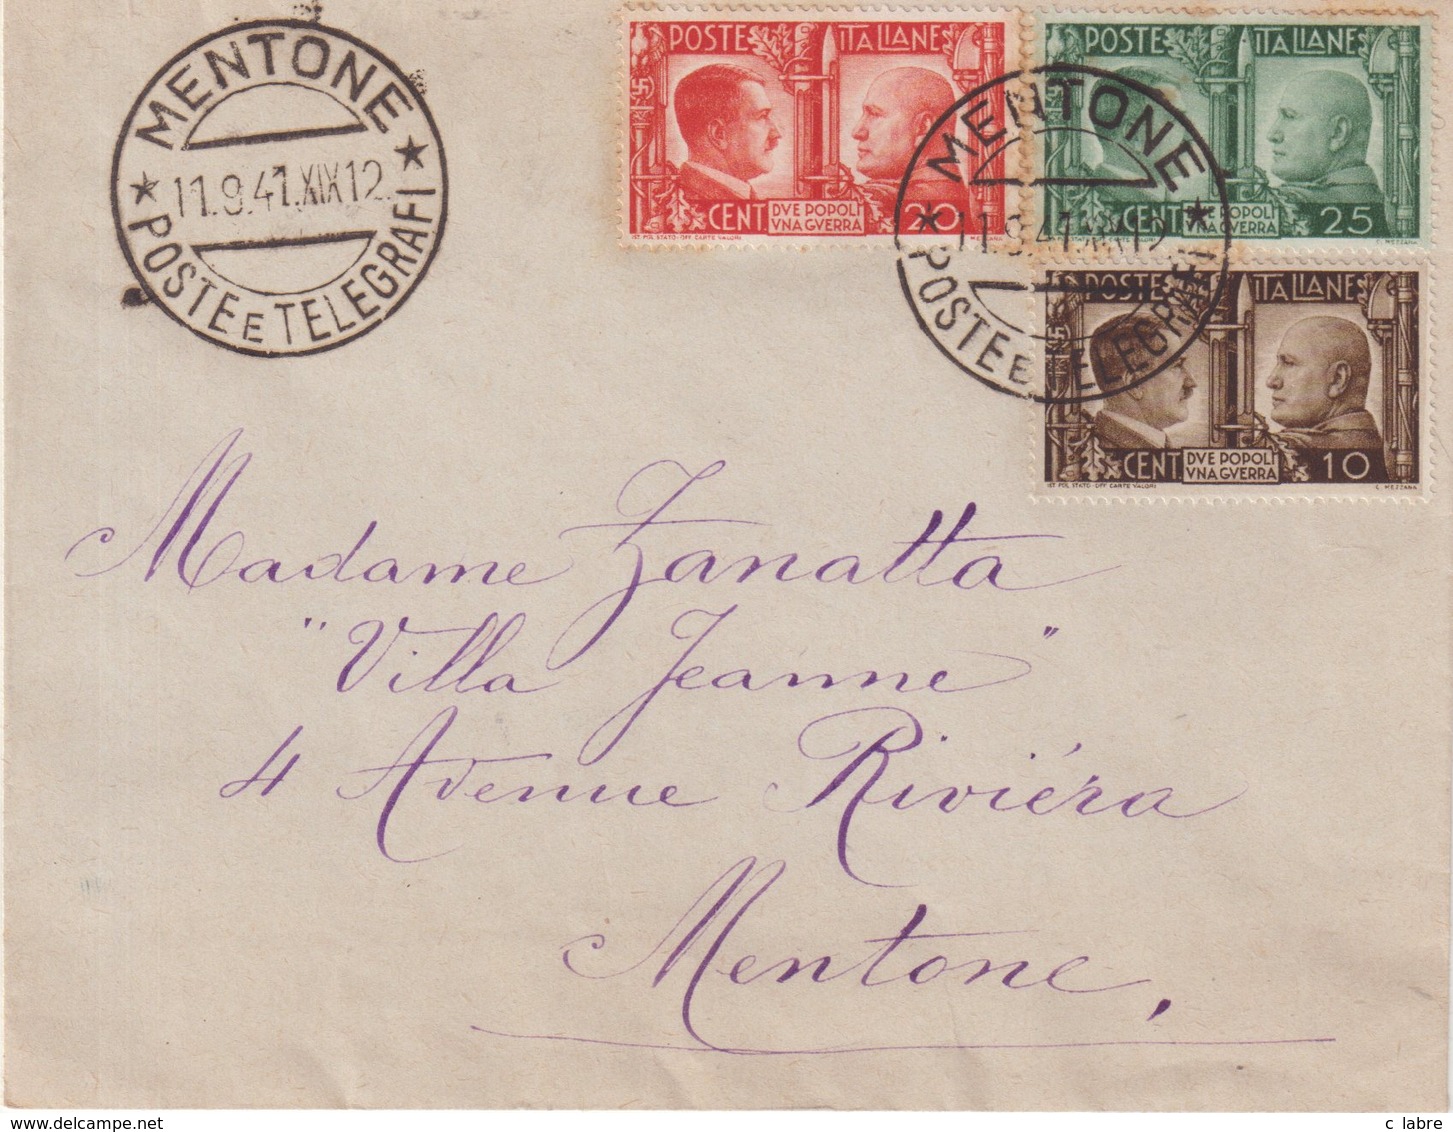 MENTONE
11.9.41.XIX12.
POSTE E TELEGRAFI
POSTE ITALIANE
CENT DVE POPOLI VNA GVERRA 20
IST. POL. STATO-OFF. CARTE VALORI C. MEZZANA
POSTE ITALIANE
CENT DVE POPOLI VNA GVERRA 25
C. MEZZANA
MENTONE
11.9.41.XIX12
POSTE E TELEGRAFI
POSTE ITALIANE
CENT DVE POPOLI VNA GVERRA 10
IST. POL. STATO-OFF. CARTE VALORI C. MEZZANA
Madame Zanatta
"Villa Jeanne"
4 Avenue Riviéra
Mentone,
www.delcampe.net
c labre